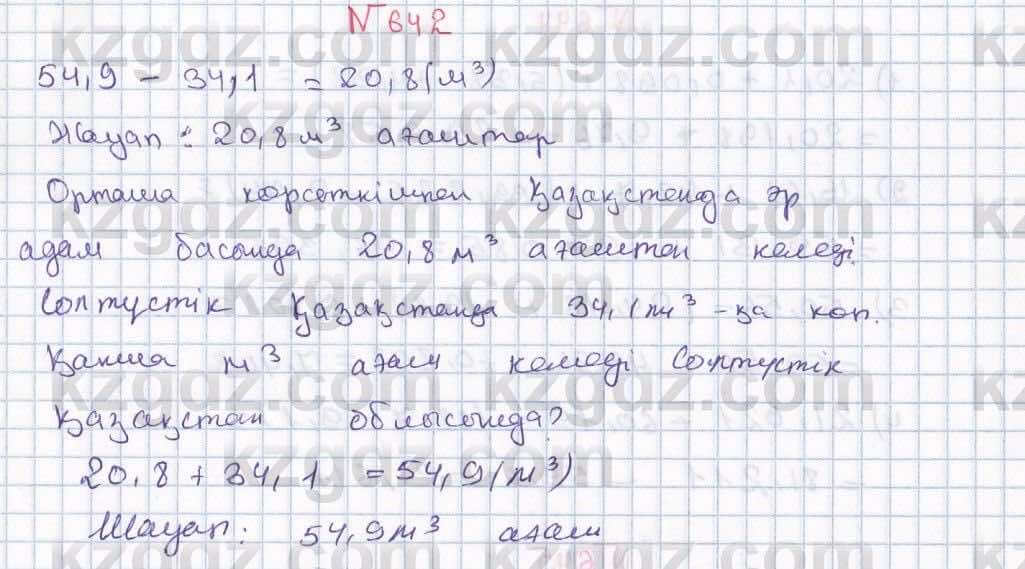 N 642
54,9 - 34,1 = 20,8 (м³)
Жауап: 20,8 м³ ағаштар
Орташа көрсеткішпен Қазақстанда әр
адам басында 20,8 м³ ағаштан келеді.
Солтүстік Қазақстанда 34,1 м³ -қа көп.
Қанша м³ ағаш келеді Солтүстік
Қазақстан облысында?
20,8 + 34,1 = 54,9 (м³)
Жауап: 54,9 м³ ағаш
kzgdz.com